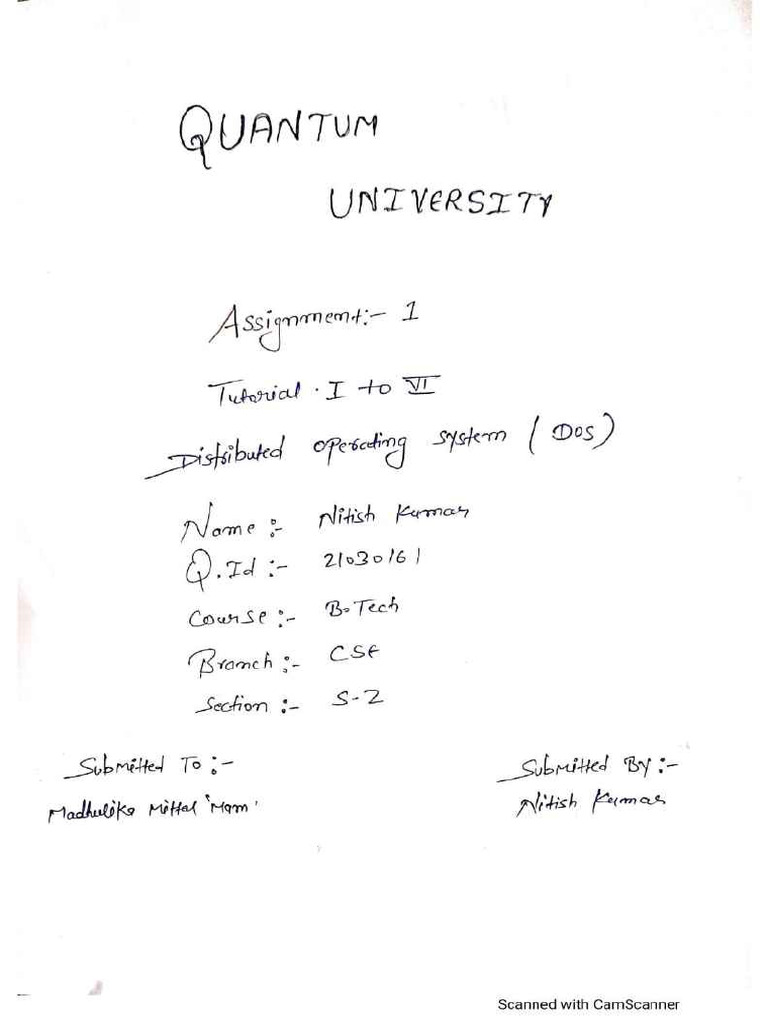 QUANTUM
UNIVERSITY
Assignment:- 1
Tutorial . I to VI
Distributed operating system (DOS)
Name :- Nitish Kumar
Q.Id :- 21030161
Course :- B.Tech
Branch :- CSE
Section :- S-2
Submitted To :-
Madhulika Mittal 'Mam'
Submitted By :-
Nitish Kumar
Scanned with CamScanner